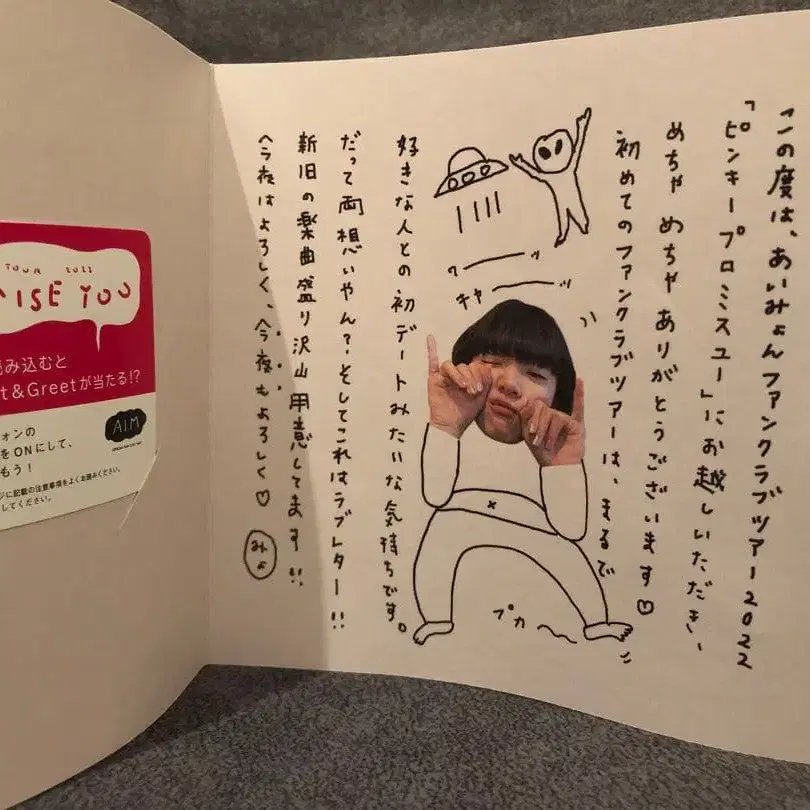 この度は、あいみょんファンクラブツアー2022
「ピンキープロミスユー」にお越しいただき、
めちゃめちゃありがとうございます♡
初めてのファンクラブツアーは、まるで
好きな人との初デートみたいな気持ちです。
だって両想いやん?そしてこれはラブレター!!
新旧の楽曲盛り沢山用意してます!!
今夜はよろしく、今夜もよろしく♡
みょ
ワーーッ
キャーーッ
プカ〜
TOUR 2022
ISE YOU
み込むと
t&Greetが当たる!?
ォンの
をONにして、
もう!
AIM
ジに記載の注意事項をよくお読みください。
してください。